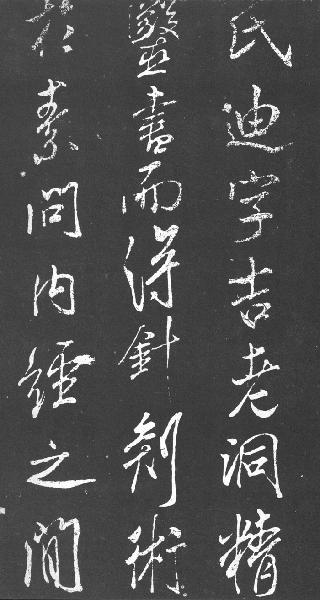 氏迪字吉老洞精
毉書而得針刺術
於素問内經之間